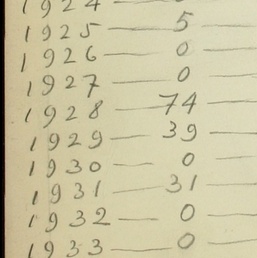 1924 —
1925 — 5 —
1926 — 0 —
1927 — 0 —
1928 — 74 —
1929 — 39 —
1930 — 0 —
1931 — 31 —
1932 — 0 —
1933 — 0 —